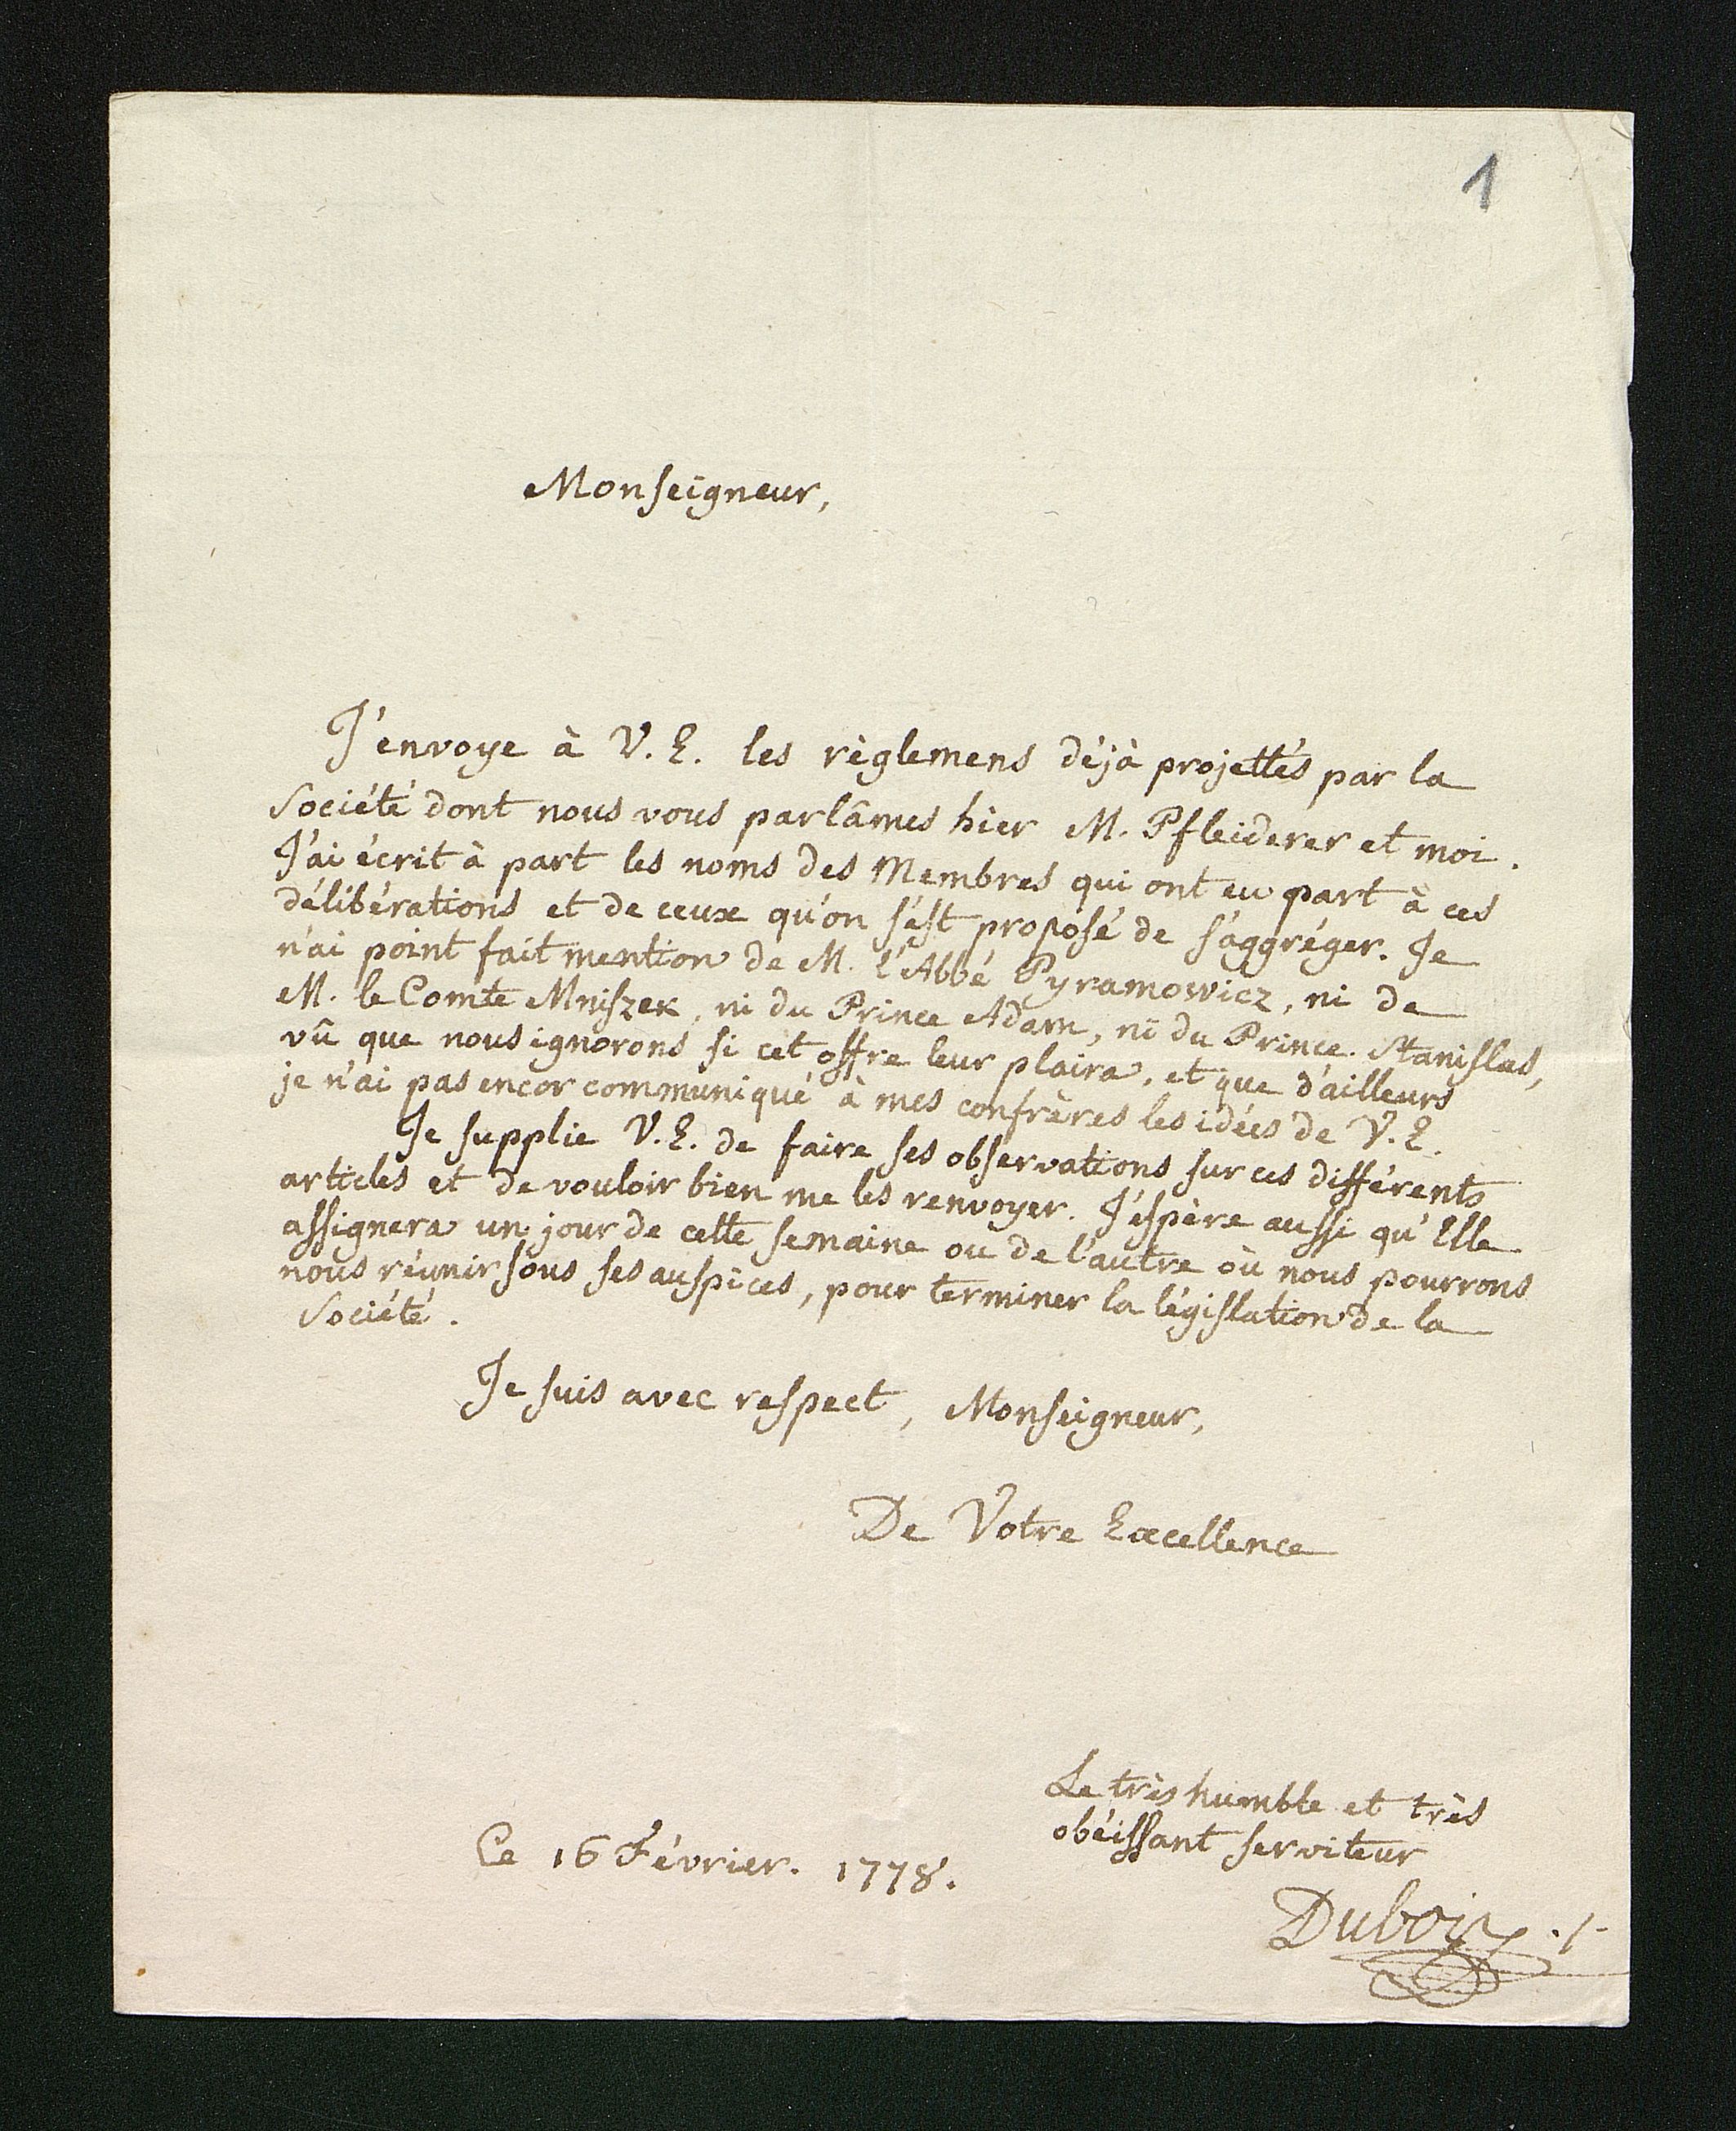 1
Monseigneur,
J'envoye à V. E. les règlemens déjà projettés par la
Société dont nous vous parlâmes hier M. Pfleiderer et moi.
J'ai écrit à part les noms des Membres qui ont eu part à ces
délibérations et de ceux qu'on s'est proposé de s'aggréger. Je
n'ai point fait mention de M. l'Abbé Pyramowicz, ni de
M. le Comte Mniszek, ni du Prince Adam, ni du Prince Stanislas,
vû que nous ignorons si cet offre leur plaira, et que d'ailleurs
je n'ai pas encor communiqué à mes confrères les idées de V. E.
Je supplie V. E. de faire ses observations sur ces différents
articles et de vouloir bien me les renvoyer. J'espère aussi qu'Elle
assignera un jour de cette semaine ou de l'autre où nous pourrons
nous réunir sous ses auspices, pour terminer la législation de la
Société.
Je suis avec respect, Monseigneur,
De Votre Excellence
Le très humble et très
obéissant serviteur
Ce 16 Février. 1778.
Dubois